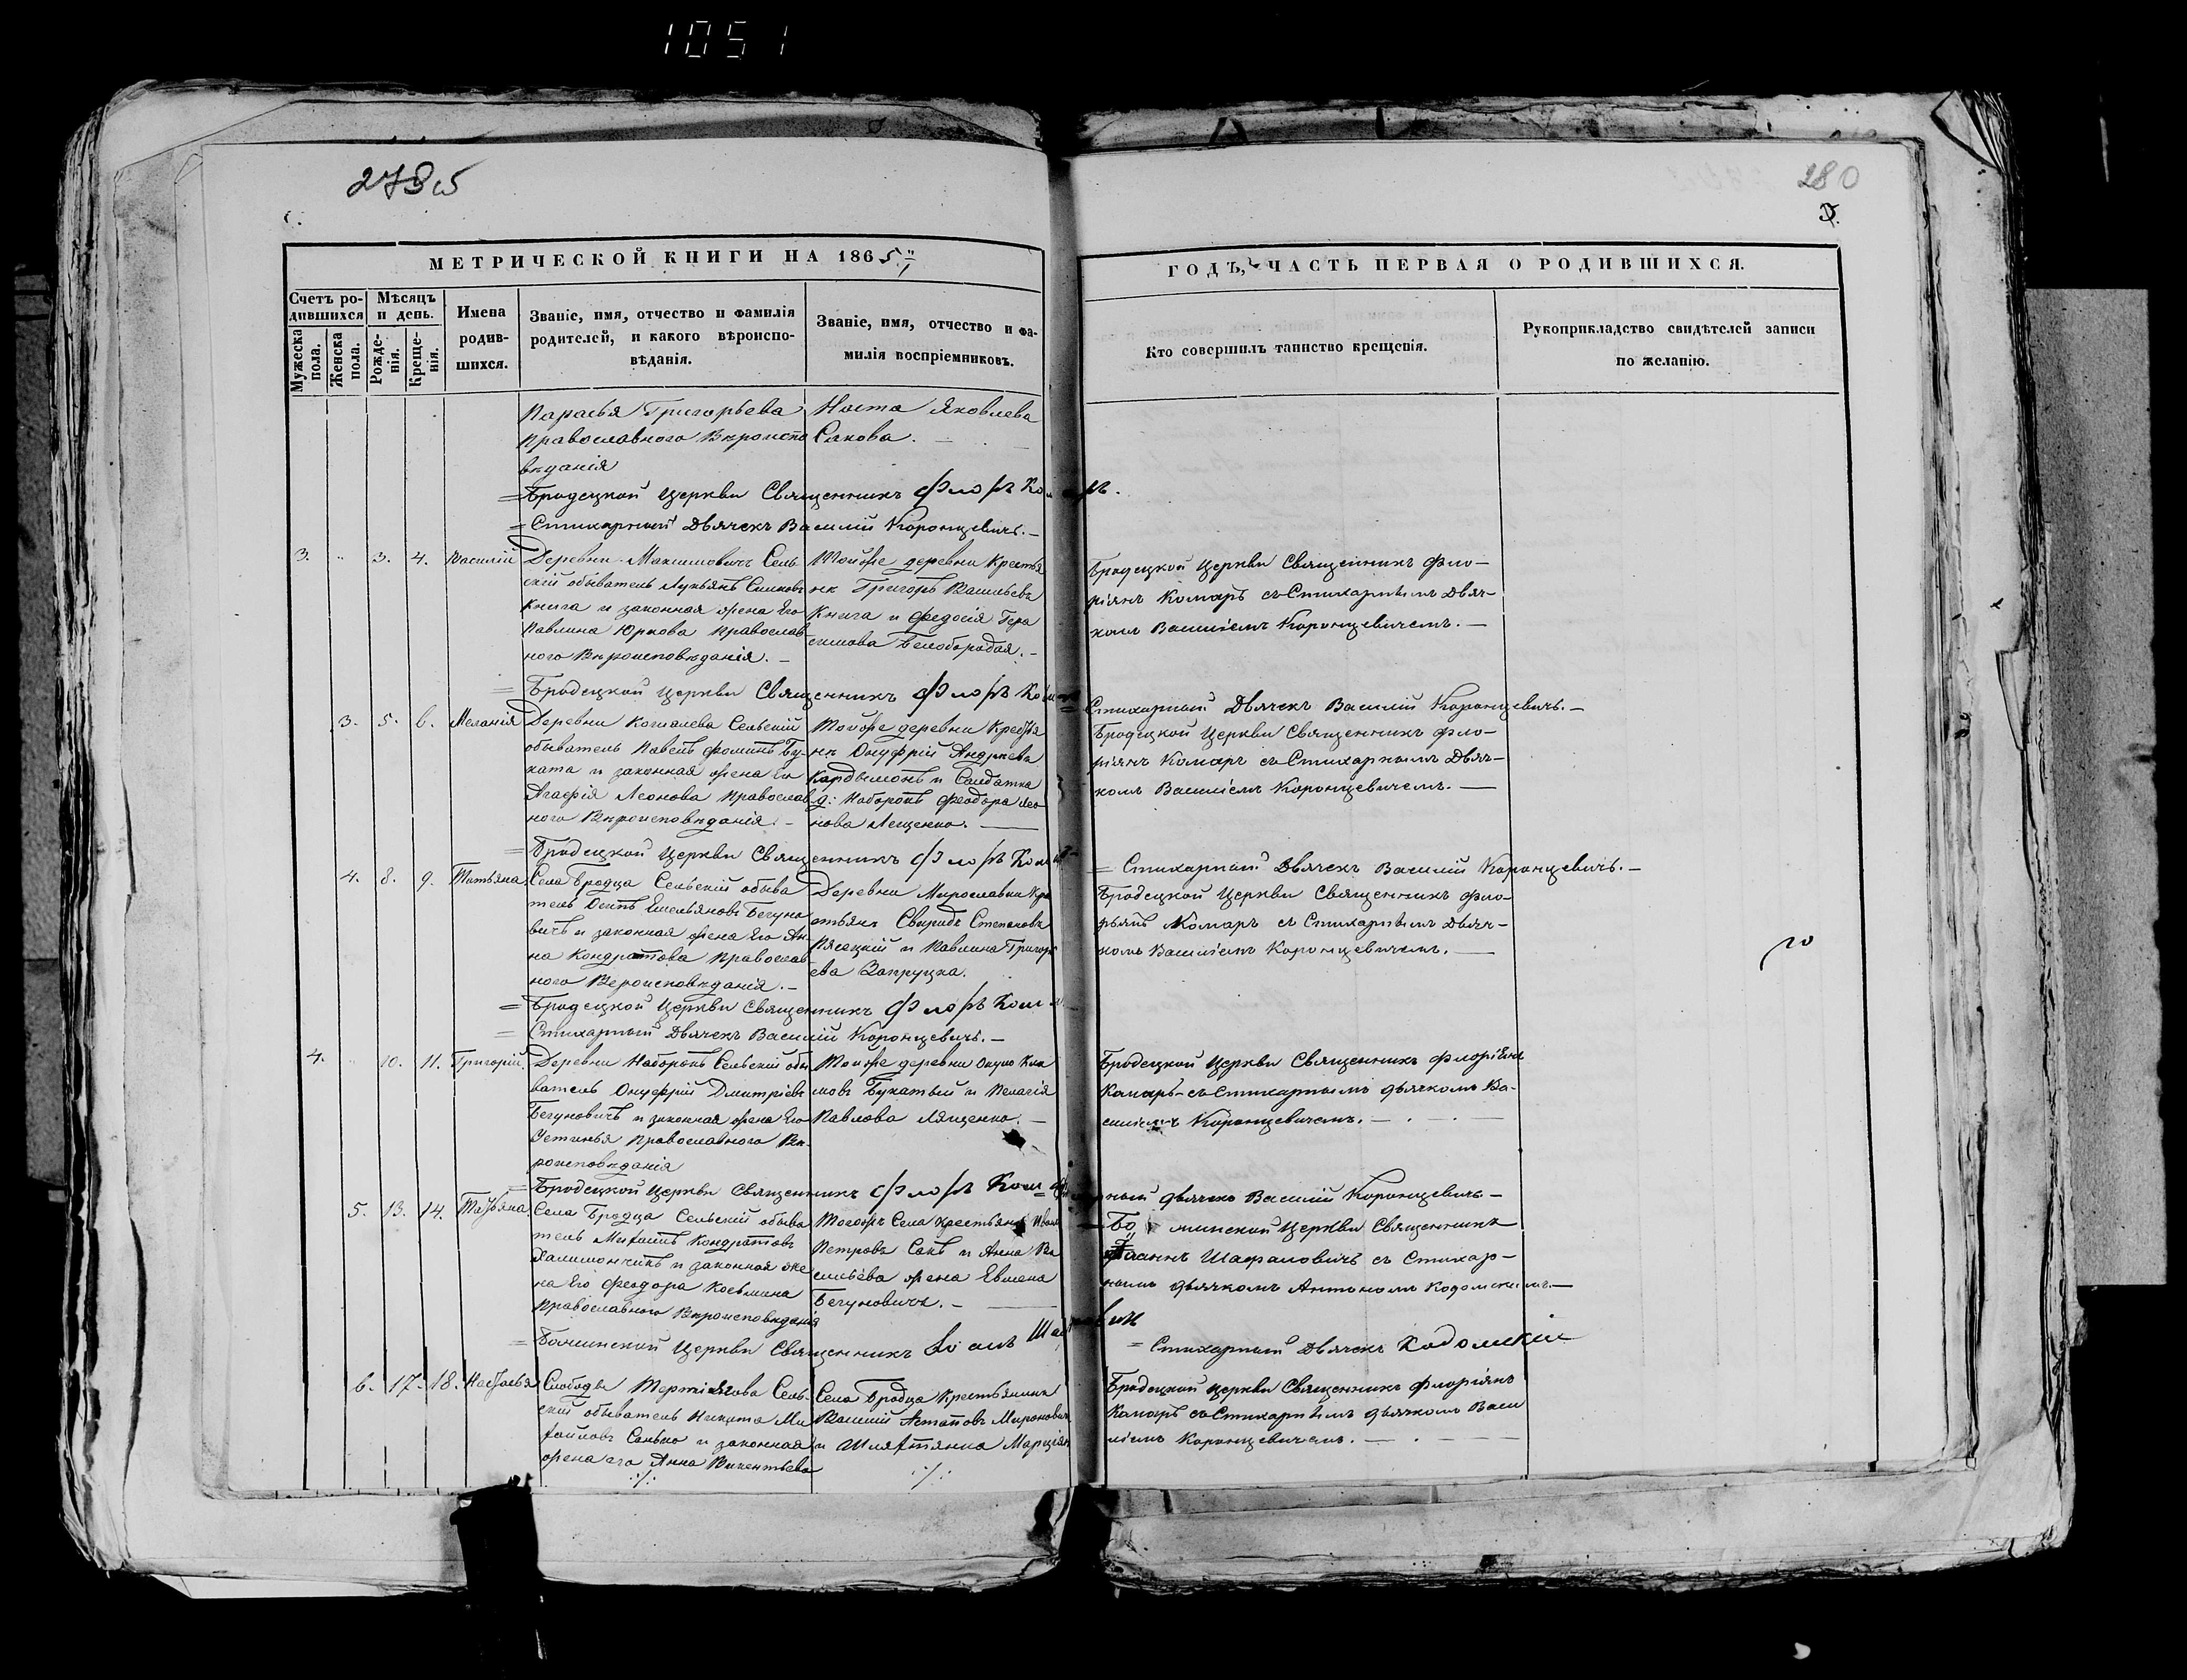 1051
280
МЕТРИЧЕСКОЙ КНИГИ НА 1865
ГОДЪ, ЧАСТЬ ПЕРВАЯ О РОДИВШИХСЯ.
Счетъ родившихся
Мужеска пола.
Женска пола.
Мѣсяцъ и день.
Рожденія.
Крещенія.
Имена родившихся.
Званіе, имя, отчество и фамилія
родителей, и какого вѣроиспо-
вѣданія.
Званіе, имя, отчество и фа-
милія воспріемниковъ.
Кто совершилъ таинство крещенія.
Рукоприкладство свидѣтелей записи
по желанію.
Парасья Григорьева
Православного Вѣроиспо
вѣданія
Яковлева
=Бродецкой Церкви Священникъ Флоръ Комаръ.
=Стихарный Дьячекъ Василій Коронцевичъ.—
3. " 3. 4. Василій
Деревни Максимовичъ Сель
скій обыватель Лукьянъ
Книга и законная жена Его
Павлина Юркова Православ
ного Вѣроисповѣданія.—
Тойже деревни Крестья
нк Григоръ Васильевъ
Книга и Федосія Гера
симова Белобородая.—
Бродецкой Церкви Священникъ Фло-
ріянъ Комаръ съ Стихарнымъ Дьяч-
комъ Василіемъ Коронцевичемъ.—
=Бродецкой Церкви Священникъ Флоръ
Стихарный Дьячекъ Василій Коронцевичъ.—
3. 5. 6. Меланія
Деревни Сельскій
обыватель Павелъ Фоминъ Бу-
ката и законная жена Его
Агафія Леонова Православ
ного Вѣроисповѣданія.—
Тойже деревни Крестья
нк Онуфрій Андреевъ
и Салдатка
д: Наборокъ Феодора Лео
нова Лещенко.—
Бродецкой Церкви Священникъ Фло-
ріянъ Комаръ съ Стихарнымъ Дьяч-
комъ Василіемъ Коронцевичемъ.—
=Бродецкой Церкви Священникъ Флоръ
=Стихарный Дьячекъ Василій Коронцевичъ.—
4. 8. 9. Татьяна.
Села Бродца Сельскій обыва
тель Осипъ Емельяновъ Бегуно
вичъ и законная жена Его Ан
на Кондратова Православ
ного Вероисповѣданія.—
Деревни Мирославки Кре
стьянъ Свиридъ Степановъ
и Павлина Григорь
ева
Бродецкой Церкви Священникъ Фло-
рьянъ Комаръ съ Стихарнымъ Дьяч-
комъ Василіемъ Коронцевичемъ.—
=Бродецкой Церкви Священникъ Флоръ
=Стихарный Дьячекъ Василій Коронцевичъ.—
4. " 10. 11. Григорій.
Деревни Наборокъ Сельскій обы
ватель Онуфрій Дмитріевъ
Бегуновичъ и законная жена Его
Устинья Православного Вѣ
роисповѣданія
Тойже деревни
Букатый и Пелагія
Павлова Лященко.—
Бродецкой Церкви Священникъ Флоріянъ
Комаръ съ Стихарнымъ дьячкомъ Ва-
силіемъ Коронцевичемъ.—
=Бродецкой Церкви Священникъ Флоръ
дьячекъ Василій Коронцевичъ—
5. 13. 14. Татьяна.
Села Бродца Сельскій обыва
тель Михаилъ Кондратовъ
и законная же
на Его Феодора Косьмина
Православного Вѣроисповѣданія
Тогожъ Села Крестьянъ Иванъ
Петровъ и Анна Ва
сильева жена
Бегуновича.—
Церкви Священникъ
Іоаннъ Шафаловичъ съ Стихар-
нымъ дьячкомъ Антономъ
Церкви Священникъ
=Стихарный Дьячекъ
6. 17. 18. Настасья
Слободы Сель
скій обыватель Никита Ми
хайловъ Санько и законная
жена его Анна Викентьева
./.
Села Бродца Крестьянинъ
Василій Астаповъ Миронович
и Шляхтянка
./.
Бродецкой церкви Священникъ Флоріянъ
Комаръ съ Стихарнымъ дьячкомъ Васи
ліемъ Коронцевичемъ.—